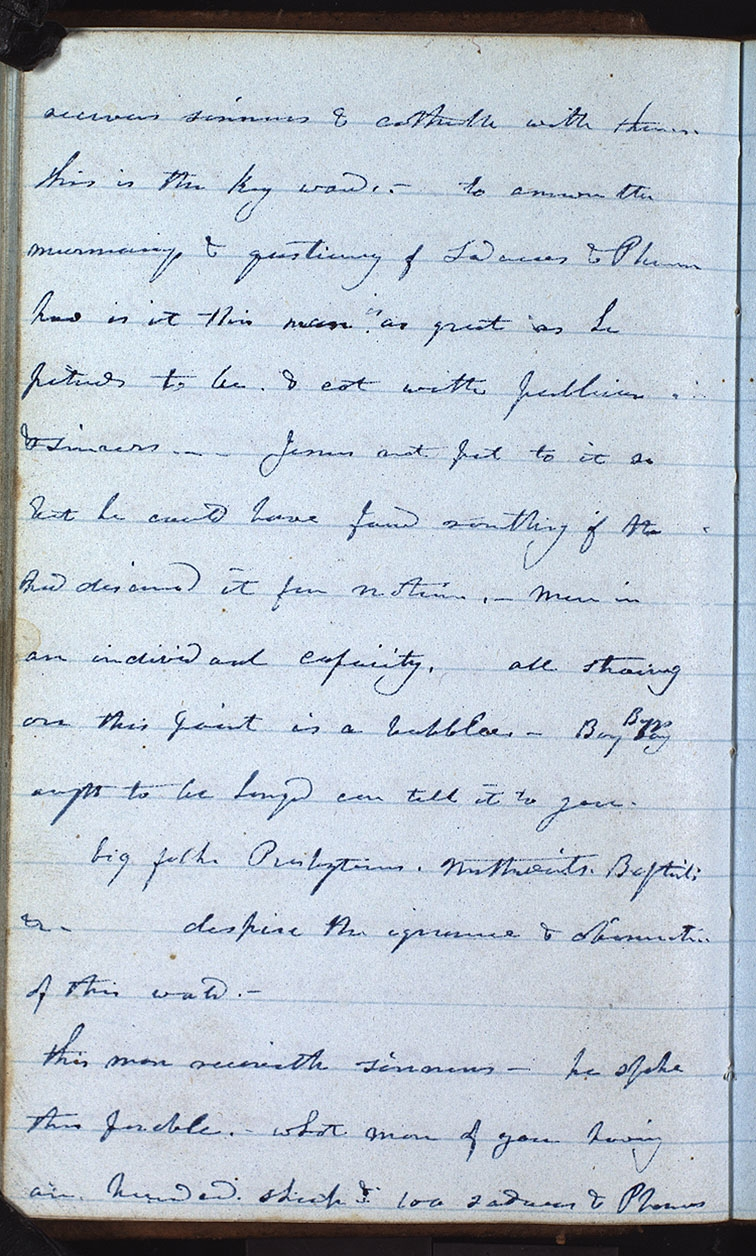 receives sinners & eateth with them.
this is the key word. - to answer the
murmuring & questioning of Saducees & Phari
how is it this man "as great as he
pretends to be. & eat with publicans
& sinners - - - Jesus not put to it so
but he could have found something if he
had discerned it for notion. - men in
an individual capacity. all straing
on this point is a bubble. - Boy Boys
aught to be longed can tell it to you.
big folks Presbyterians. Methodists. Baptists
&c - despise the ignorance & obscurity
of this world. -
this man receiveth sinners - he spoke
this parable. - what man of you having
an hundred sheep & 100 saducees & Pharisees